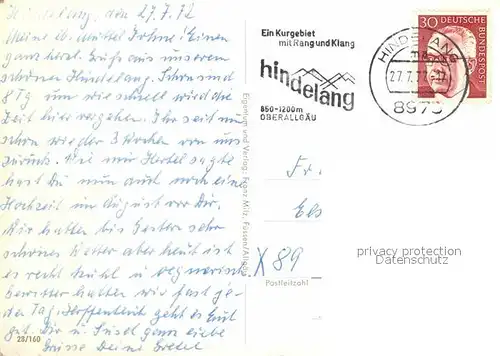 Hindelang, den 27.7.72
Meine lb. Mutter Sohne! Einen
ganz herzl. Gruß aus unserem
schönen Hindelang. Schon sind
8 Tg um wie schnell wird die
Zeit hier vergehen. Ihr seit nun
schon wieder 3 Wochen von uns
zurück. Wie mir Hertel sagte
hast Du nun auch noch eine
Hochzeit im August vor Dir.
Wir hatten bis gestern sehr
schönes Wetter aber heut ist
es recht kühl u. regnerisch
Gewitter hatten wir fast je-
den Tag. Hoffentlich geht es Euch
gut. Dir u. Insel ganz liebe
Grüsse Deine Gretel
28/160
Eigentum und Verlag: Franz Milz, Füssen/Allgäu
Ein Kurgebiet
mit Rang und Klang
hindelang
850-1200m
OBERALLGÄU
HINDELANG
27.7.72
8973
30 DEUTSCHE
BUNDESPOST
Fr.
Els
X 89
Postleitzahl
privacy protection
Datenschutz